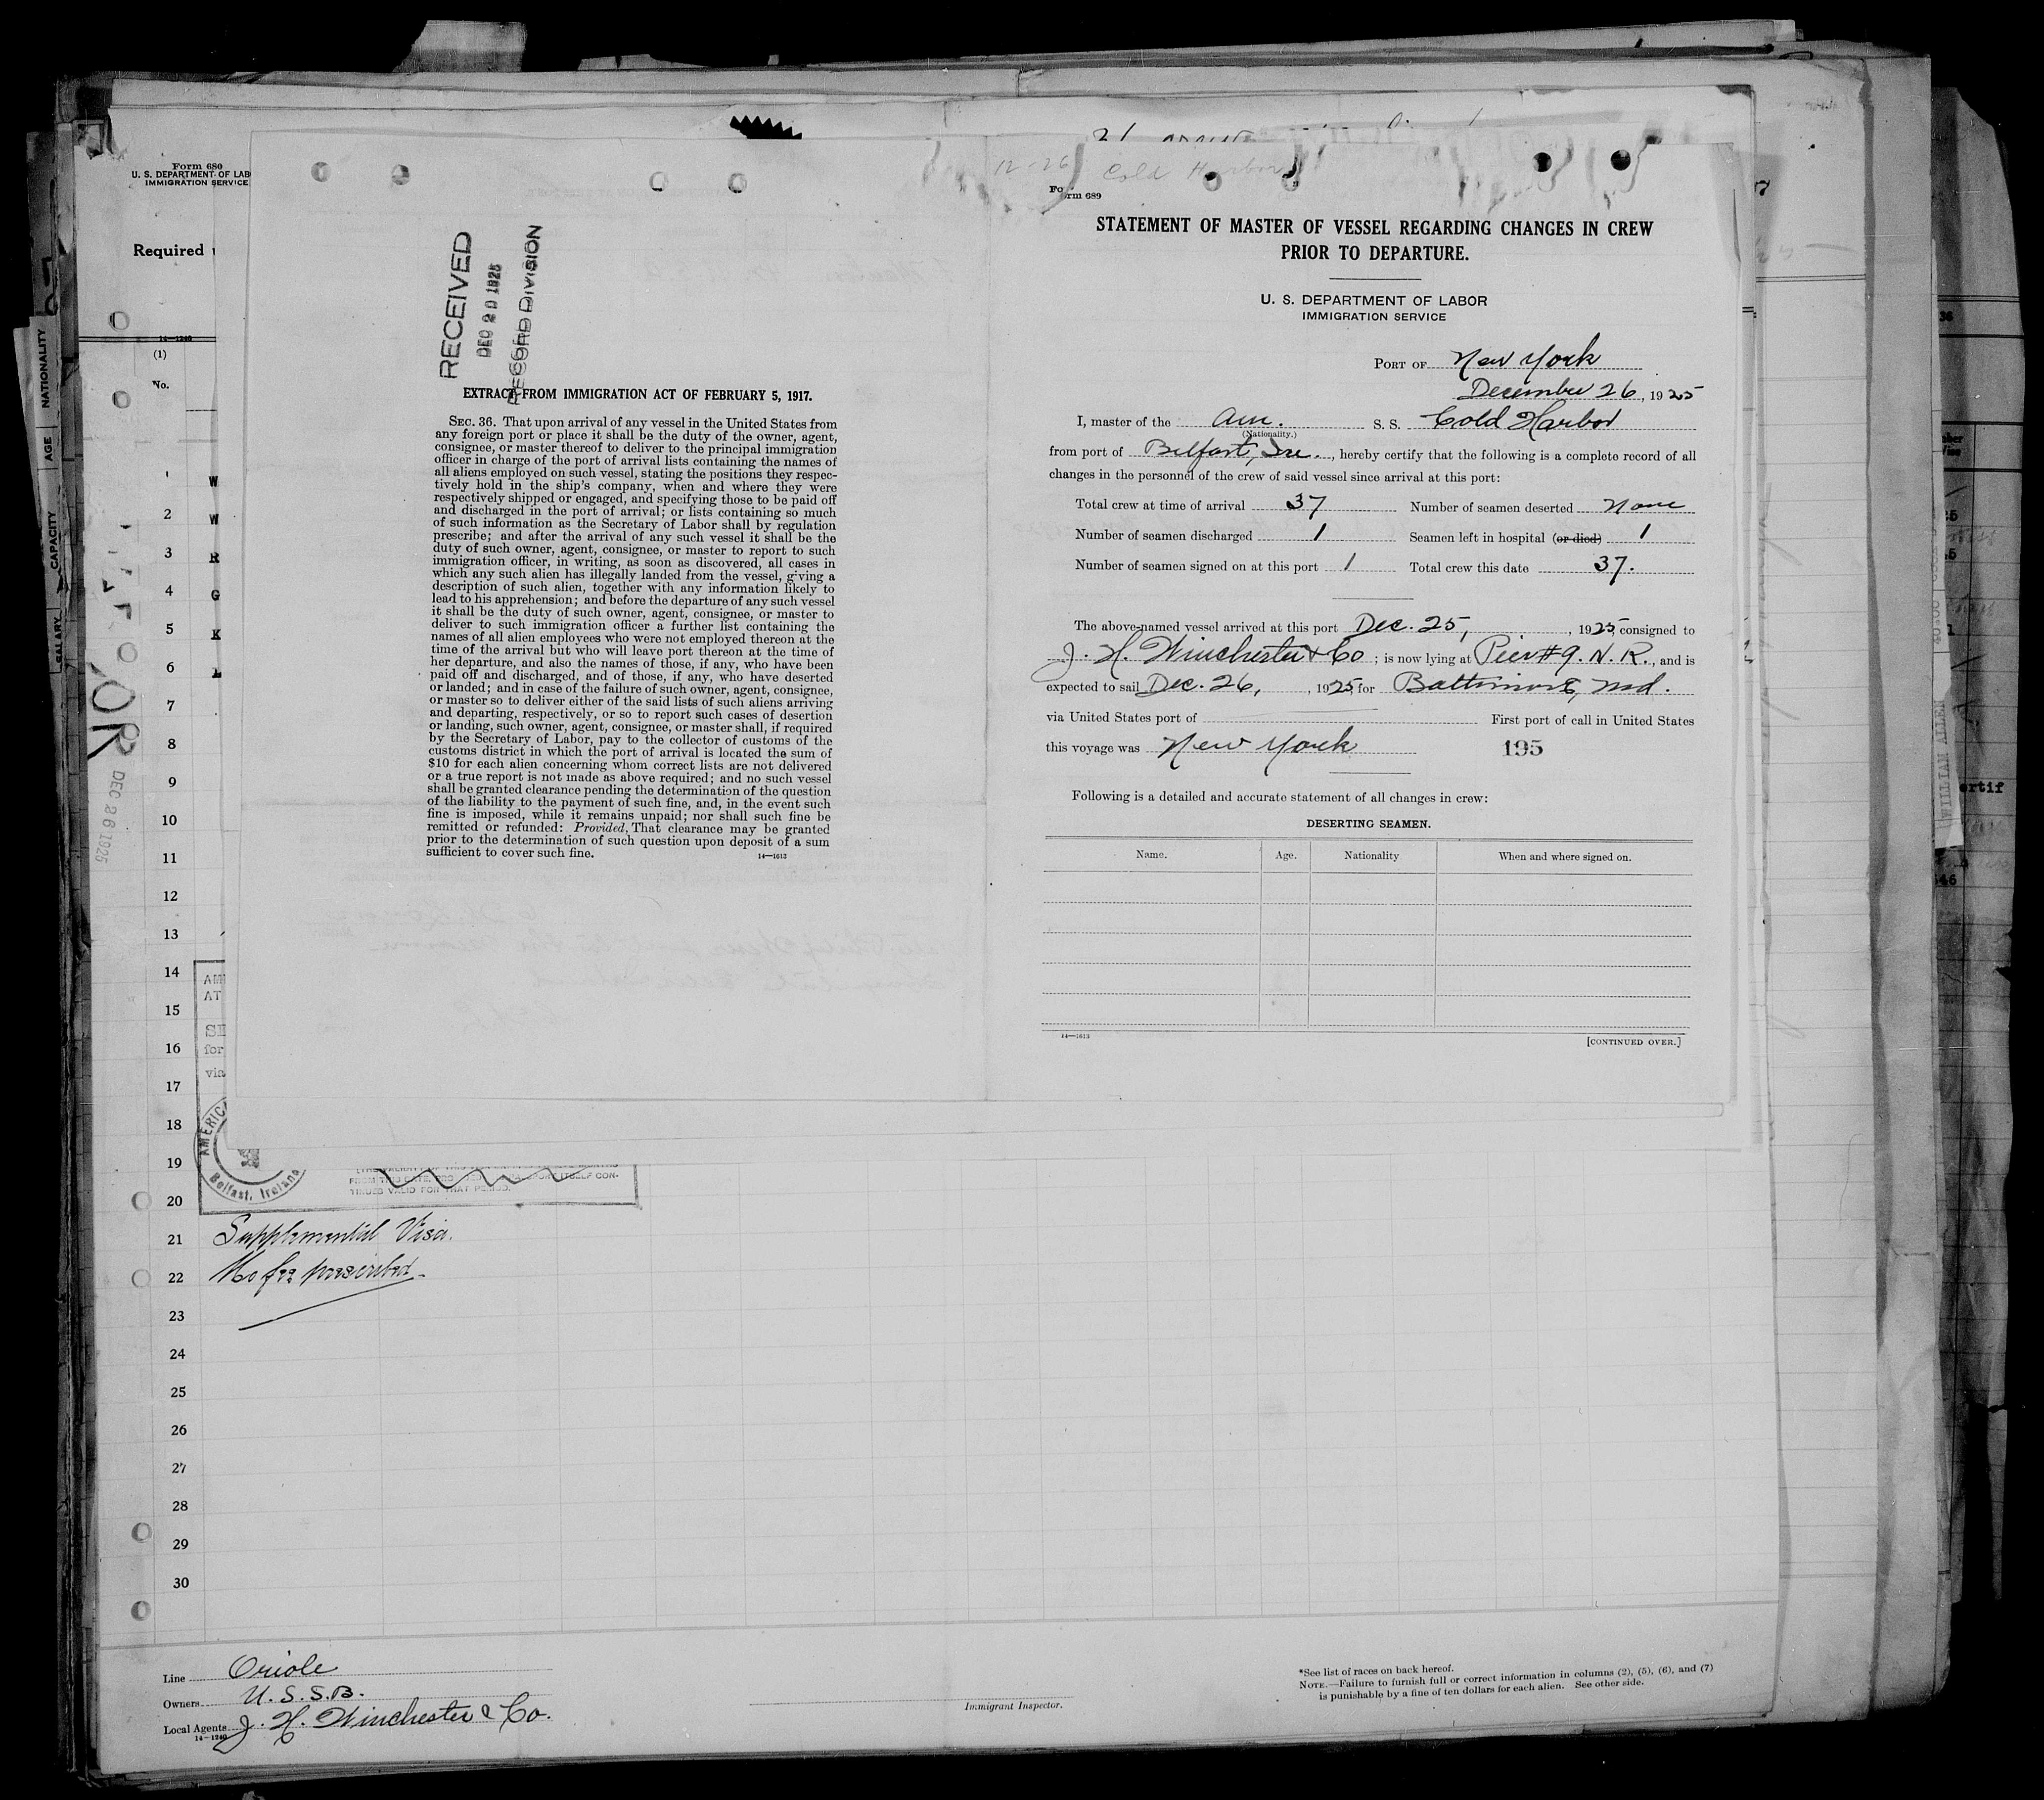 Form 680
U. S. DEPARTMENT OF LAB
IMMIGRATION SERVICE
Required
14—1240
(1)
No.
1 W
2 W
3 R
4 G
5 K
6 L
7
8
9
10
11
12
13
14
15
16
17
18
19
20
21
22
23
24
25
26
27
28
29
30
NATIONALITY
AGE
CAPACITY
SALARY
DEC 26 1925
RECEIVED
DEC 29 1925
RECORD DIVISION
EXTRACT FROM IMMIGRATION ACT OF FEBRUARY 5, 1917.
SEC. 36. That upon arrival of any vessel in the United States from
any foreign port or place it shall be the duty of the owner, agent,
consignee, or master thereof to deliver to the principal immigration
officer in charge of the port of arrival lists containing the names of
all aliens employed on such vessel, stating the positions they respec-
tively hold in the ship's company, when and where they were
respectively shipped or engaged, and specifying those to be paid off
and discharged in the port of arrival; or lists containing so much
of such information as the Secretary of Labor shall by regulation
prescribe; and after the arrival of any such vessel it shall be the
duty of such owner, agent, consignee, or master to report to such
immigration officer, in writing, as soon as discovered, all cases in
which any such alien has illegally landed from the vessel, giving a
description of such alien, together with any information likely to
lead to his apprehension; and before the departure of any such vessel
it shall be the duty of such owner, agent, consignee, or master to
deliver to such immigration officer a further list containing the
names of all alien employees who were not employed thereon at the
time of the arrival but who will leave port thereon at the time of
her departure, and also the names of those, if any, who have been
paid off and discharged, and of those, if any, who have deserted
or landed; and in case of the failure of such owner, agent, consignee,
or master so to deliver either of the said lists of such aliens arriving
and departing, respectively, or so to report such cases of desertion
or landing, such owner, agent, consignee, or master shall, if required
by the Secretary of Labor, pay to the collector of customs of the
customs district in which the port of arrival is located the sum of
$10 for each alien concerning whom correct lists are not delivered
or a true report is not made as above required; and no such vessel
shall be granted clearance pending the determination of the question
of the liability to the payment of such fine, and, in the event such
fine is imposed, while it remains unpaid; nor shall such fine be
remitted or refunded: Provided, That clearance may be granted
prior to the determination of such question upon deposit of a sum
sufficient to cover such fine.
14—1613
12-26 Cold Harbor
Form 689
STATEMENT OF MASTER OF VESSEL REGARDING CHANGES IN CREW
PRIOR TO DEPARTURE.
U. S. DEPARTMENT OF LABOR
IMMIGRATION SERVICE
PORT OF New York
December 26, 1925
I, master of the Am. S. S. Cold Harbor
(Nationality.)
from port of Belfast, Ire., hereby certify that the following is a complete record of all
changes in the personnel of the crew of said vessel since arrival at this port:
Total crew at time of arrival 37 Number of seamen deserted None
Number of seamen discharged 1 Seamen left in hospital (or died) 1
Number of seamen signed on at this port 1 Total crew this date 37.
The above-named vessel arrived at this port Dec. 25, , 1925, consigned to
J. H. Winchester & Co ; is now lying at Pier #9. N. R., and is
expected to sail Dec. 26, , 1925 for Baltimore, Md.
via United States port of First port of call in United States
this voyage was New York 195
Following is a detailed and accurate statement of all changes in crew:
DESERTING SEAMEN.
Name. Age. Nationality When and where signed on.
14—1613
[CONTINUED OVER.]
AM
AT
SE
for
via
AMERIC
Belfast, Ireland
FROM THIS DATE, PRO
TINUES VALID FOR THAT PERIOD.
Supplemental Visa.
No fee prescribed.
Line Oriole
Owners U. S. S. B.
Local Agents J. H. Winchester & Co.
14—1240
Immigrant Inspector.
*See list of races on back hereof.
NOTE.—Failure to furnish full or correct information in columns (2), (5), (6), and (7)
is punishable by a fine of ten dollars for each alien. See other side.